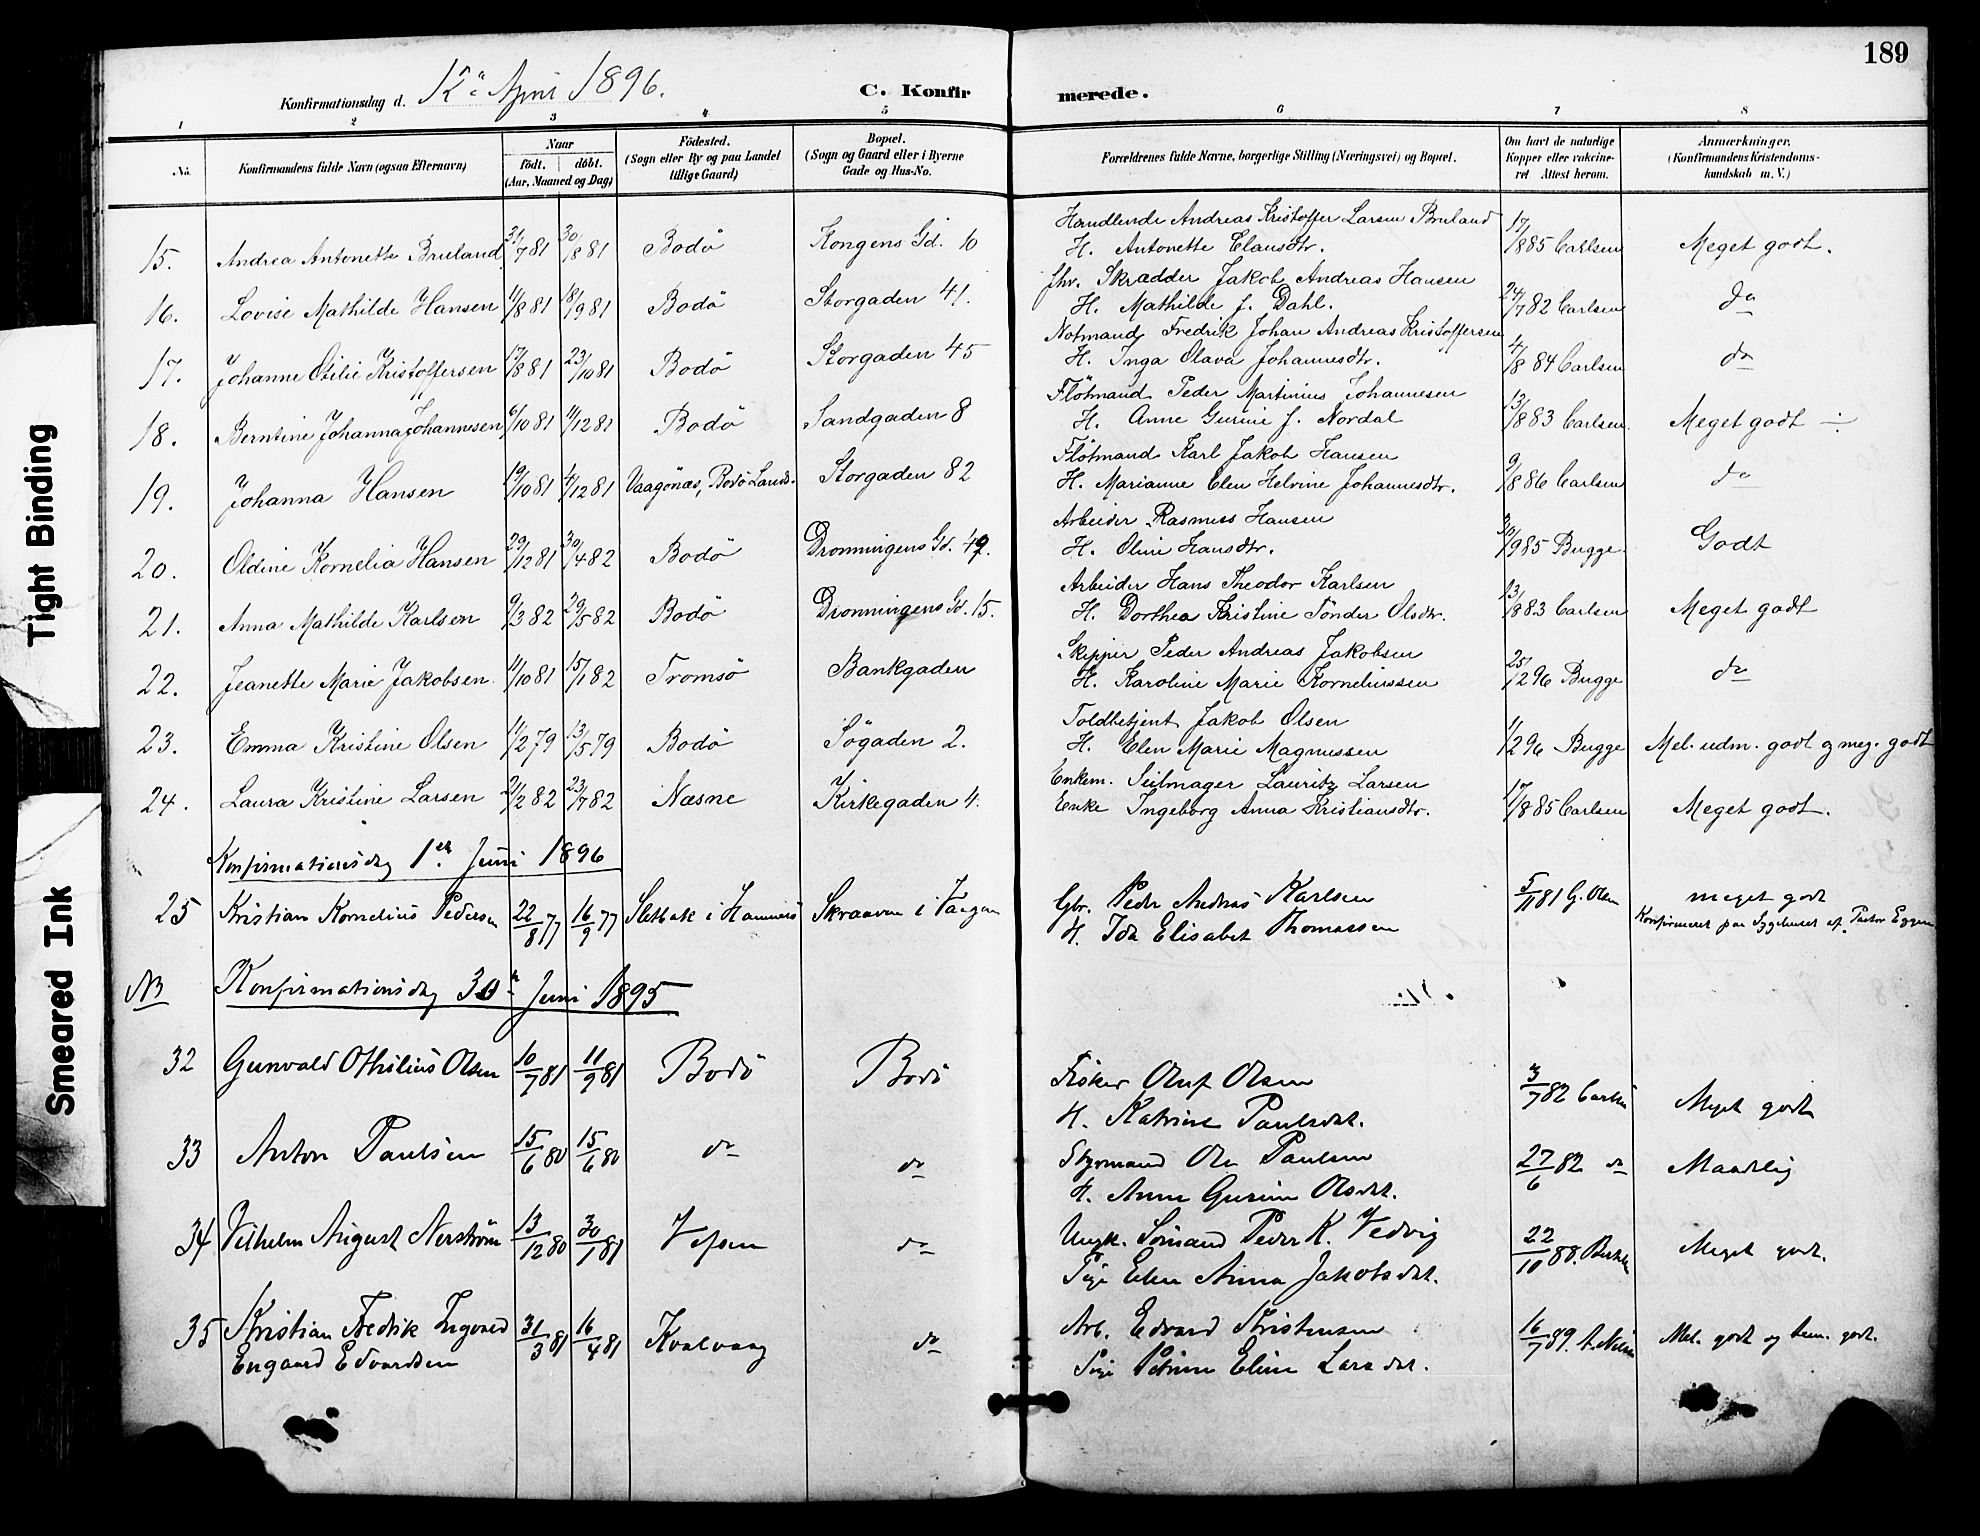 189
Konfirmationsdag d. 12te April 1896. C. Konfirmerede.
1 2 3 4 5 6 7 8
No. Konfirmandens fulde Navn (ogsaa Efternavn) Naar födt. döbt. (Aar, Maaned og Dag) Födested. (Sogn eller By og paa Landet tillige Gaard) Bopæl. (Sogn og Gaard eller i Byerne Gade og Hus-No. Forældrenes fulde Navne, borgerlige Stilling (Næringsvei) og Bopæl. Om havt de naturlige Kopper eller vaccineret Attest herom. Anmærkninger. (Konfirmandens Kristendomskundskab m. V.)
15. Andrea Antonette Bruland 31/7 81 30/8 81 Bodö Kongens Gd. 10 Handlende Andreas Kristoffer Larsen Bruland 17/8 85 Carlsen Meget godt.
H. Antonette Clausdtr.
16. Lovise Mathilde Hansen 11/8 81 18/9 81 Bodö Storgaden 41. fhv. Skrædder Jakob Andreas Hansen 24/7 82 Carlsen do
H. Mathilde f. Dahl.
17. Johanne Otilie Kristoffersen 17/8 81 23/10 81 Bodö Storgaden 45 Notmand Fredrik Johan Andreas Kristoffersen 4/8 84 Carlsen do
H. Inga Olava Johannesdtr.
18. Berntine Johanna Johannesen 6/10 81 11/12 81 Bodö Sandgaden 8 Flötmand Peder Martinius Johannesen 13/8 83 Carlsen. Meget godt ÷
H. Anne Gurine f. Nordal
19. Johanna Hansen 19/10 81 4/12 81 Vaagönæs, Bodö Lands. Storgaden 82 Flötmand Karl Jakob Hansen 9/8 86 Carlsen do
H. Marianne Elen Helvine Johannesdtr.
20. Oldine Kornelia Hansen 29/12 81 30/4 82 Bodö Dronningens Gd. 49. Arbeider Rasmus Hansen 30/9 85 Bugge. Godt
H. Oline Hansdtr.
21. Anna Mathilde Karlsen 9/3 82 29/5 82 Bodö Dronningens Gd. 15. Arbeider Hans Theodor Karlsen 13/8 83 Carlsen Meget godt
H. Dorthea Kristine Tönder Olsdtr.
22. Jeanette Marie Jakobsen. 11/10 81 15/1 82 Tromsö Bankgaden Skipper Peder Andreas Jakobsen 25/2 96 Bugge do
H. Karoline Marie Korneliussen
23. Emma Kristine Olsen 11/2 79 13/5 79 Bodö Sögaden 2. Toldbetjent Jakob Olsen 1/2 96 Bugge Mel. udm. godt og meg. godt
H. Elen Marie Magnussen
24. Laura Kristine Larsen 21/2 82 23/7 82 Næsne Kirkegaden 4. Enkem. Seilmager Lauritz Larsen 17/8 85 Carlsen Meget godt.
Enke Ingeborg Anna Kristiansdtr.
Konfirmationsdag 1ste Juni 1896
25 Kristian Kornelius Pedersen 22/8 77 16/9 77 i Hammerö i Vaagan Gbr. Peder Andreas Karlsen 5/11 81 G. Olsen meget godt
H. Ida Elisabet Thomassen Konfirmeret paa Sygehuset af Pastor Eggen
NB Konfirmationsdag 30te Juni 1895
32 Gunvald Othilius Olsen 10/7 81 11/9 81 Bodö Bodö Fisker Oluf Olsen 3/7 82 Carlsen Meget godt
H. Katrine Paulsdat.
33 Anton Paulsen 15/6 80 15/6 80 do do Styrmand Ole Paulsen 27/6 82 do Maadelig
H. Anne Gurine Olsdat.
34 Vilhelm August Nerström 13/12 80 30/1 81 Vefsen do Ungk. Sömand Peder K. Vedvig 22/10 88. Meget godt.
Pige Elen Anna Jakobsdat.
35 Kristian Fredrik Ingvard 31/3 81 16/4 81 Kvalvaag do Arb. Edvard Kristensen 16/7 89. Mel. godt og tem. godt.
Engaard Edvardsen Pige Petrine Eline Larsdat.
Tight Binding
Smeared Ink